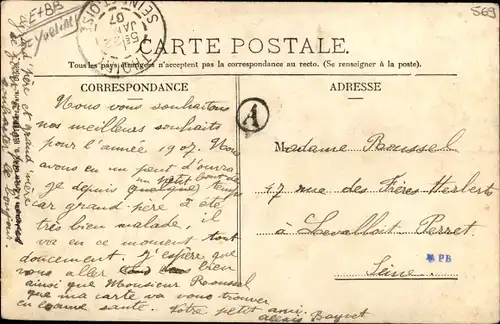 569
E+BB
Yvelin
SEINE-ET-OISE
5E/22
JAN
07
CARTE POSTALE.
Tous les pays étrangers n'acceptent pas la correspondance au recto. (Se renseigner à la poste).
CORRESPONDANCE
ADRESSE
A
Nous vous souhaitons
nos meilleurs souhaits
pour l'année 1907. Nous
avons eu un peu d'ouvra
un petit bout de
ge depuis quelques temps
car grand père a été
très bien malade, il
va en ce moment tout
doucement. J'espère que
vous aller bien
ainsi que Monsieur Roussel
que ma carte va vous trouver
en bonne santé. Votre petit ami.
Alexis Boquet
grand père et grand mère
se joignent
bonjour.
Madame Roussel
17 rue des Frères Herbert
à Levalloit Perret
Seine
PB